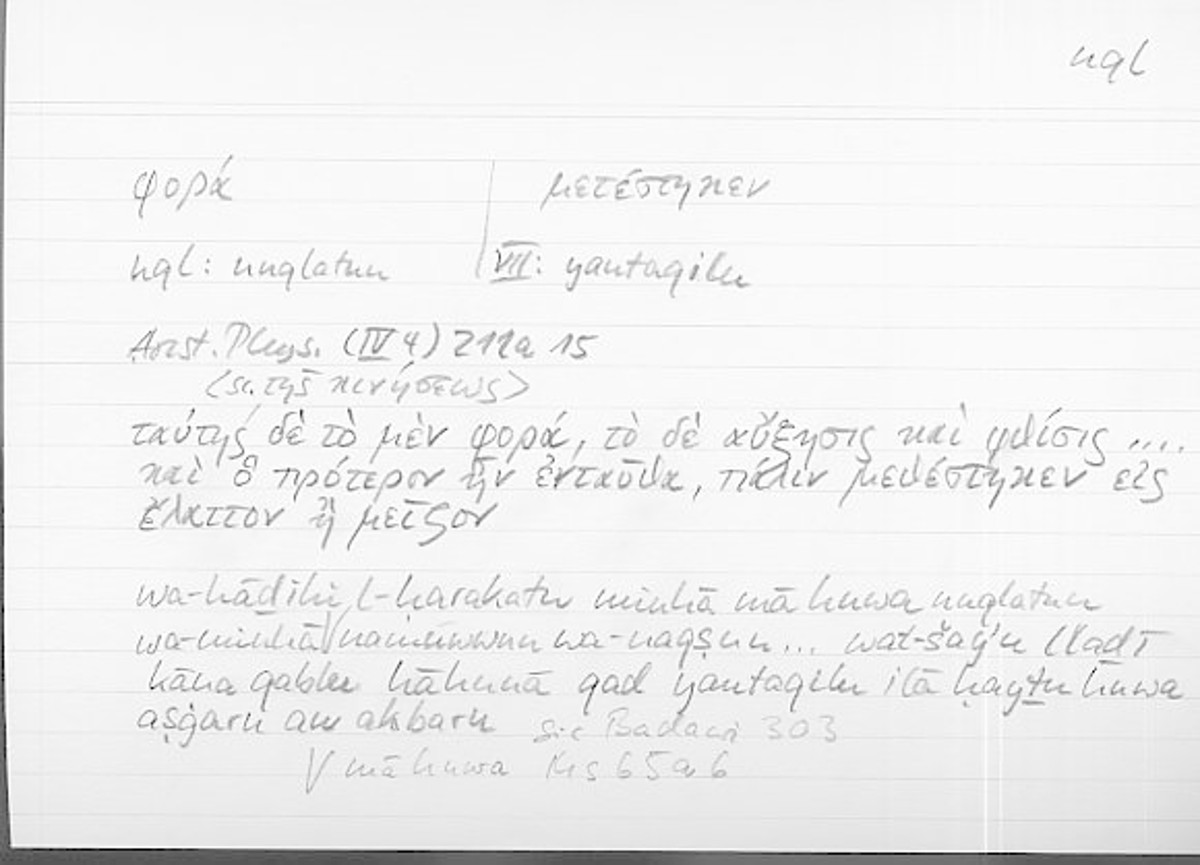 nql
φορά | μετέστηκεν
nql: nuqlatun | VIII: yantaqilu
Arist. Phys. (IV 4) 211a 15
<sc. τῆς κινήσεως>
ταύτης δὲ τὸ μὲν φορά, τὸ δὲ αὔξησις καὶ φθίσις ....
καὶ ὃ πρότερον ἦν ἐνταῦθα, πάλιν μεθέστηκεν εἰς
ἔλαττον ἢ μεῖζον
wa-hāḏihi l-ḥarakatu minhā mā huwa nuqlatun
wa-minhā √ namuwwun wa-naqṣun... wal-šayʾu llaḏī
kāna qablu hāhunā qad yantaqilu ilā ḥayṯu huwa
aṣġaru aw akbaru sic Badawi 303
√ mā huwa Ms 65a6